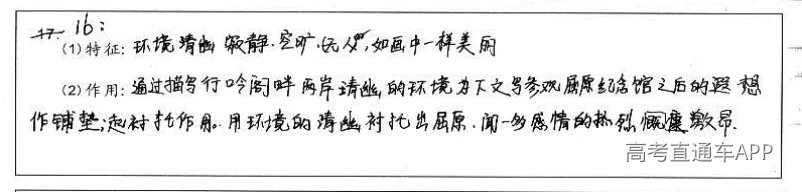 17. 16:
(1)特征: 环境清幽 寂静·空旷·无人,如画中一样美丽
(2)作用: 通过描写行吟阁畔两岸清幽的环境为下文写参观屈原纪念馆之后的遐想
作铺垫;起衬托作用。用环境的清幽衬托出屈原、闻一多感情的热烈慷慨激昂.
高考直通车APP